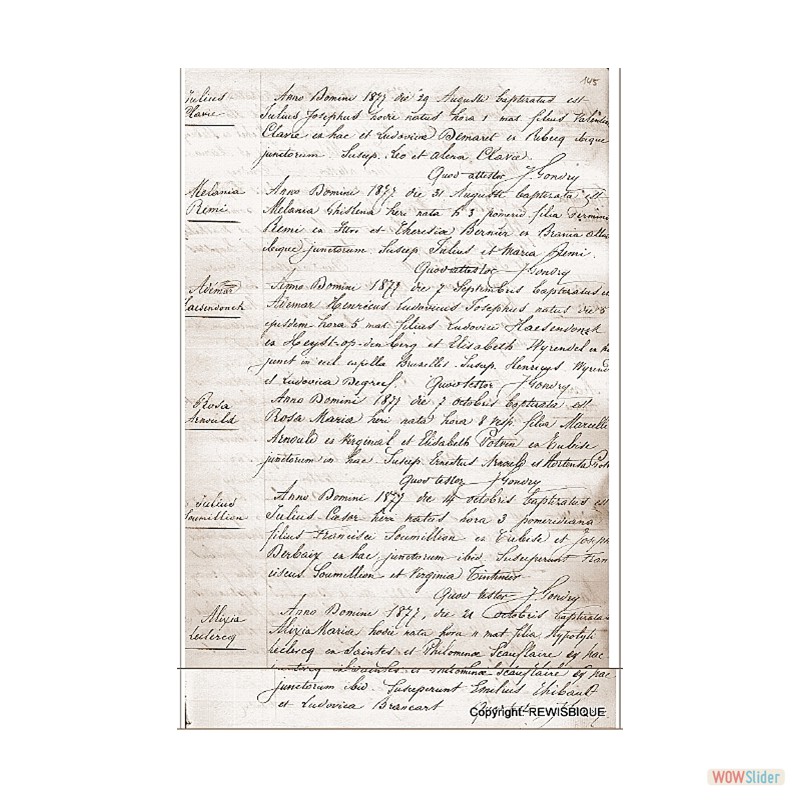 145
Julius
Clavie
Anno Domini 1877 die 29 Augusti baptizatus est
Julius Josephus hodie natus hora 1 mat. filius Valentin
Clavie ex hac et Ludovica Demaret ex Rebecq ibique
junctorum. Susep. Leo et Alena Clavie.
Quod attestor J Gondry
Melania
Remi
Anno Domini 1877 die 31 Augusti baptizata est
Melania Ghislena heri nata h 3 pomerid. filia Firmini
Remi ex et Theresia Bernier ex Brania
ibique junctorum. Suscep Julius et Maria Remi.
Quod attestor J Gondry
Adémar
Haesendonck
Anno Domini 1877 die 7 Septembris baptizatus e
Ademar Henricus Ludovicus Josephus natus die 5
ejusdem hora 5 mat. filius Ludovici Haesendonck
ex Heyst-op-den-berg et Elisabeth Wyrendel ex h
junct in eccl. capella Bruxelles Suscep. Henricus Wyrend
et Ludovica Degreef. Quod testor J Gondry
Rosa
Arnould
Anno Domini 1877 die 7 octobris baptizata est
Rosa Maria heri nata hora 8 vesp. filia Marcelli
Arnould ex Virginal et Elisabeth Potvin ex Tubise
junctorum in hac. Suscep Ernestus Arnould et Hortensia Pot
Quod testor J Gondry
Julius
Soumillion
Anno Domini 1877 die 14 octobris baptizatus es
Julius Cæsar heri natus hora 3 pomeridiana
filius Francisci Soumillion ex Tubise et Joseph
Berbaix ex hac junctorum ibid. Susceperunt Fran
ciscus Soumillion et Virginia
Quod testor J Gondry
Alixia
Leclercq
Anno Domini 1877, die 21 Octobris baptizata
Alixia Maria hodie nata hora mat filia Hypolyti
Leclercq ex Saintes et Philomenæ Scauflaire ex hac
junctorum ibid. Susceperunt Emilius Thibaut
et Ludovica Brancart
Copyright-REWISBIQUE
WOWSlider